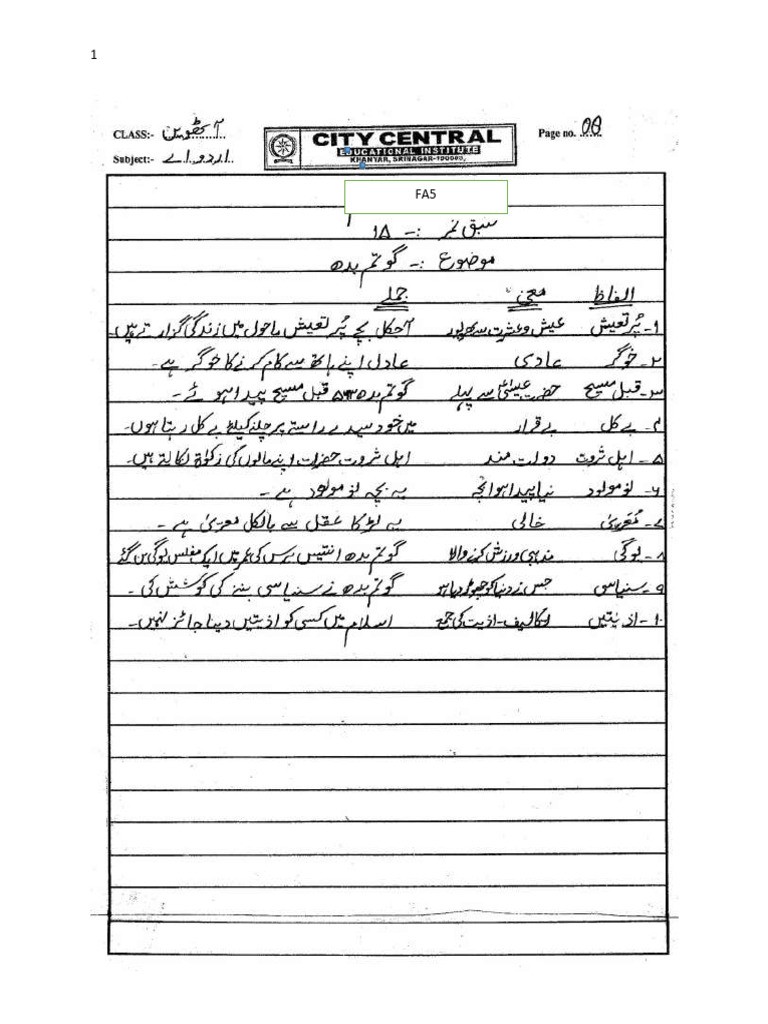 1
CLASS:- آٹھویں
CITY CENTRAL
Page no. 08
Subject:- اردو اے
EDUCATIONAL INSTITUTE
KHANYAR, SRINAGAR-190003,
FA5
سبق نمبر :- ۱۸
موضوع :- گوتم بدھ
الفاظ معنی جملے
۱- پُر تعیش عیش و عشرت سے بھرپور آجکل بچے پُر تعیش ماحول میں زندگی گزارتے ہیں۔
۲- خوگر عادی عادل اپنے ہاتھ سے کام کرنے کا خوگر ہے۔
۳- قبل مسیح حضرت عیسیٰؑ سے پہلے گوتم بدھ قبل مسیح پیدا ہوئے۔
۴- بے کل بے قرار میں خود سیدھے راستے پر چلنے کیلئے بے کل رہتا ہوں۔
۵- اہل ثروت دولت مند اہل ثروت حضرات اپنے مالوں کی زکوٰۃ نکالتے ہیں۔
۶- نو مولود نیا پیدا ہوا بچہ یہ بچہ نو مولود ہے۔
۷- مُعریٰ خالی یہ لڑکا عقل سے بالکل معریٰ ہے۔
۸- یوگی مذہبی ورزش کرنے والا گوتم بدھ انتیس برس کی عمر میں ایک مفلس یوگی بن گئے
۹- سنیاسی جس نے دنیا کو چھوڑ دیا ہو گوتم بدھ نے سنیاسی بننے کی کوشش کی۔
۱۰- اذیتیں تکالیف - اذیت کی جمع اسلام میں کسی کو اذیتیں دینا جائز نہیں۔